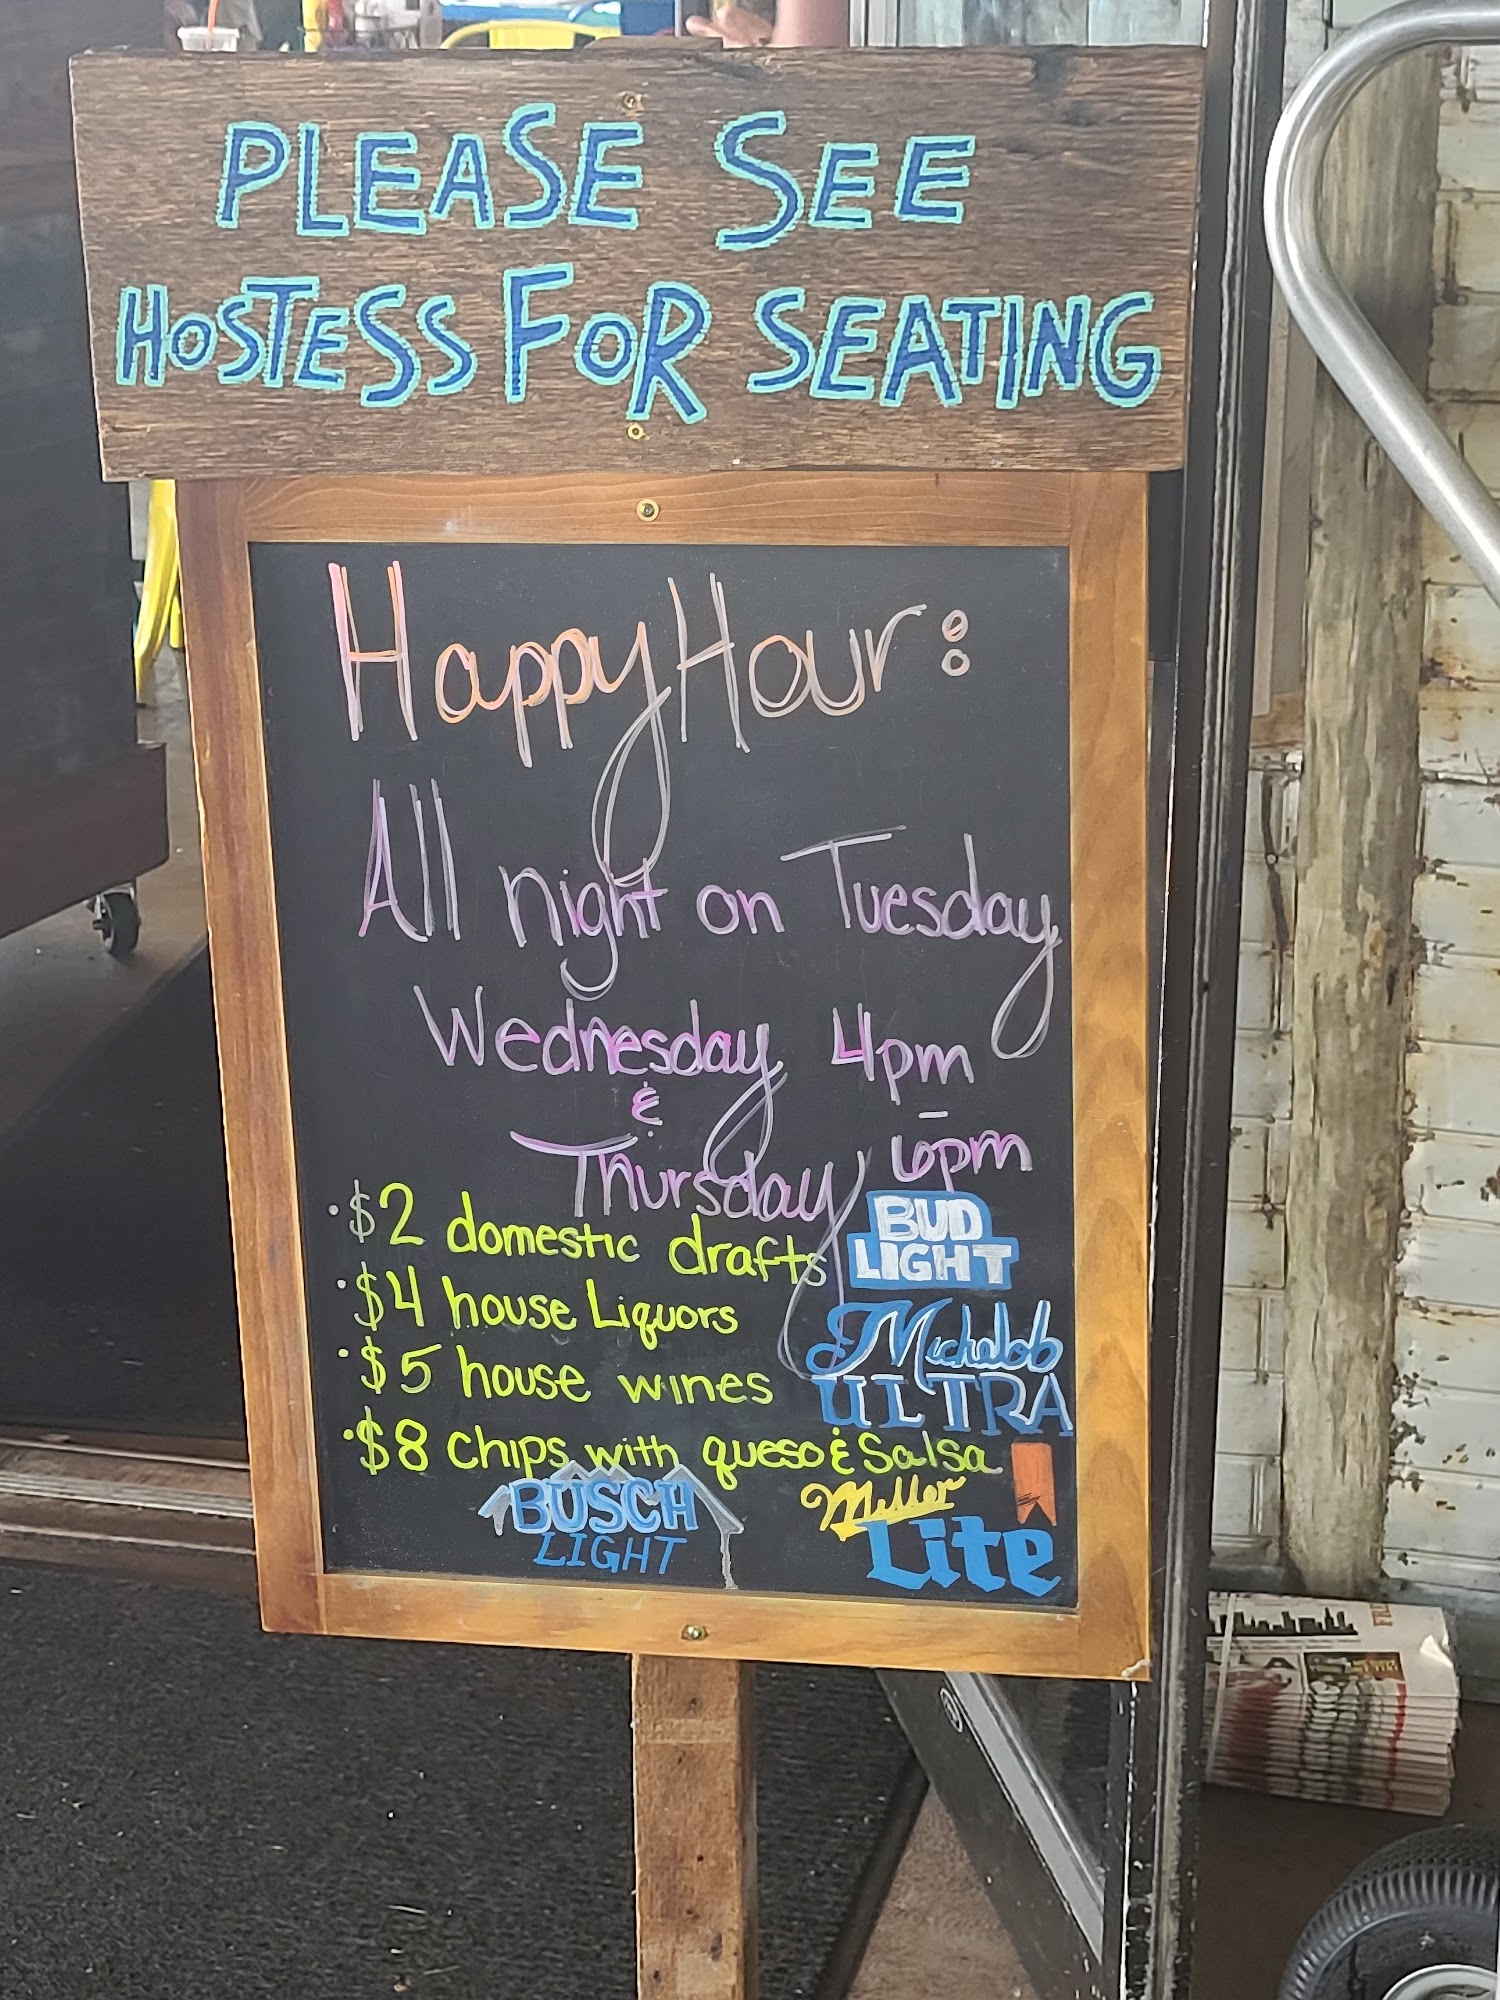 PLEASE SEE
HOSTESS FOR SEATING
Happy Hour:
All night on Tuesday
Wednesday 4pm
& -
Thursday 6pm
·$2 domestic drafts
BUD
LIGHT
·$4 house Liquors
Michelob
·$5 house wines
ULTRA
·$8 chips with queso & Salsa
BUSCH
LIGHT
Miller
Lite